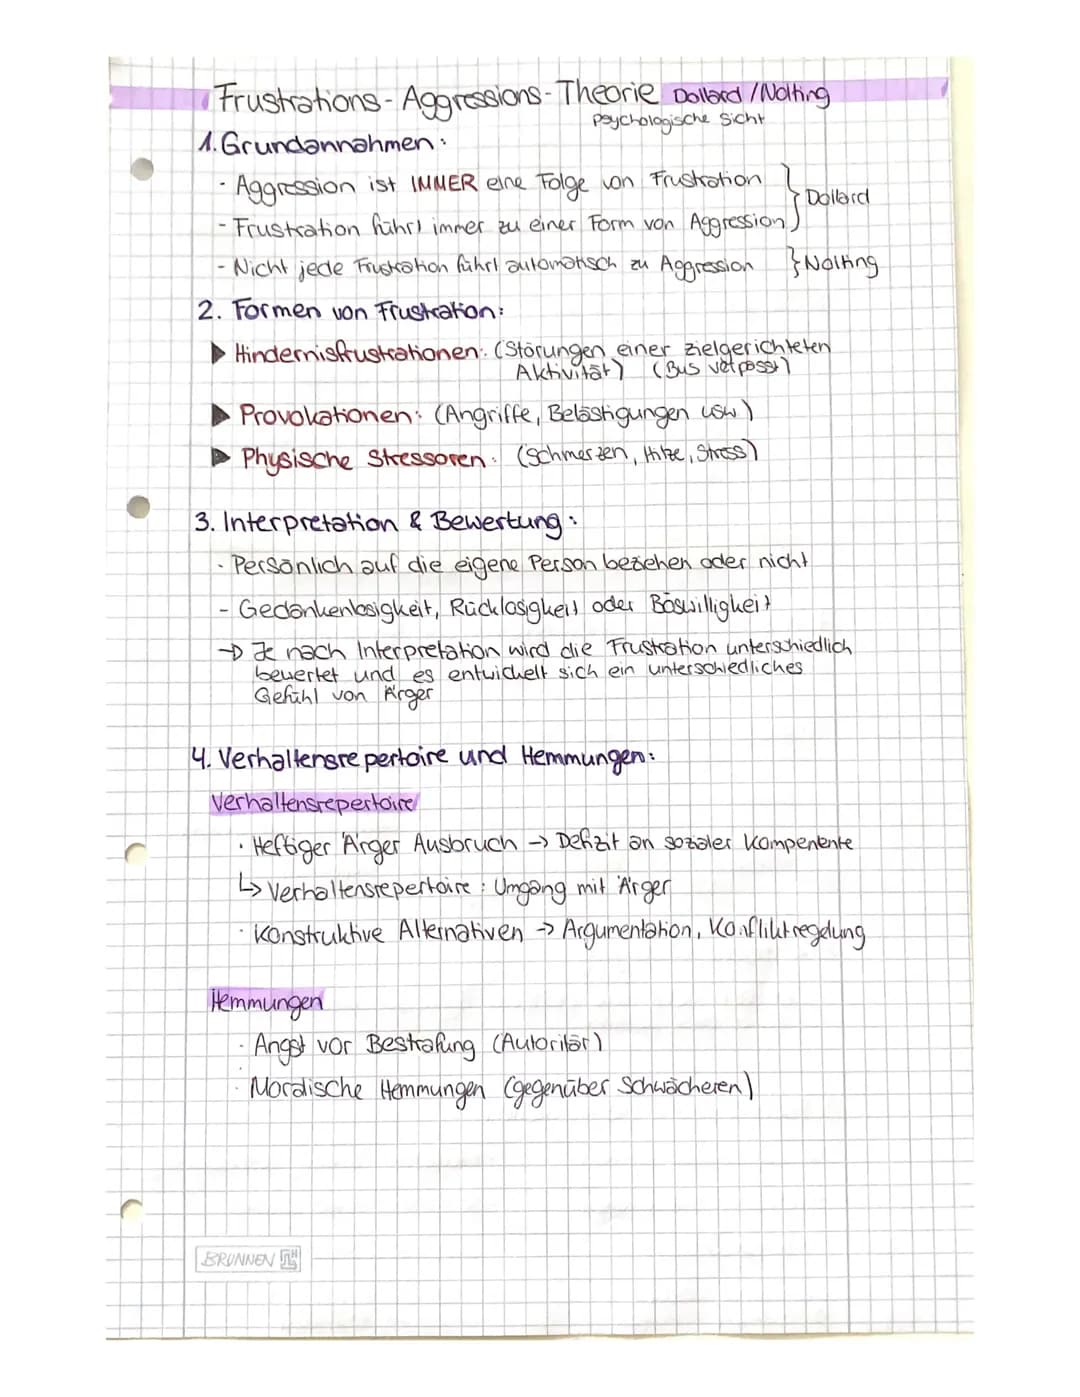 Frustrations-Aggressions-Theorie Dollard / Nolting
Psychologische Sicht
1. Grundannahmen:
- Aggression ist IMMER eine Folge von Frustration
- Frustration führt immer zu einer Form von Aggression } Dollard
- Nicht jede Frustration führt automatisch zu Aggression } Nolting
2. Formen von Frustration:
▶ Hindernisfrustrationen: (Störungen einer zielgerichteten
Aktivität) (Bus verpasst)
▶ Provokationen: (Angriffe, Belästigungen usw)
▶ Physische Stressoren: (Schmerzen, Hitze, Stress)
3. Interpretation & Bewertung:
- Persönlich auf die eigene Person beziehen oder nicht
- Gedankenlosigkeit, Rücklosigkeit oder Böswilligkeit
→ Je nach Interpretation wird die Frustration unterschiedlich
bewertet und es entwickelt sich ein unterschiedliches
Gefühl von Ärger
4. Verhaltensrepertoire und Hemmungen:
Verhaltensrepertoire
· Heftiger Ärger Ausbruch → Defizit an sozialer Kompenente
↳ Verhaltensrepertoire: Umgang mit Ärger
· Konstruktive Alternativen → Argumentation, Konfliktregelung
Hemmungen
· Angst vor Bestrafung (Autorität)
· Moralische Hemmungen (gegenüber Schwächeren)
BRUNNEN